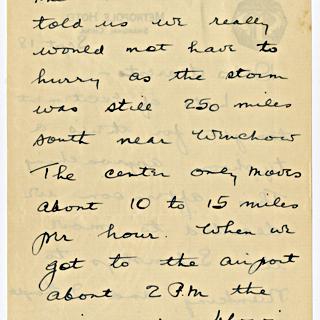 told us we really
would not have to
hurry as the storm
was still 250 miles
south near Wenchow
The center only moves
about 10 to 15 miles
per hour. When we
got to the airport
about 2 P.M the